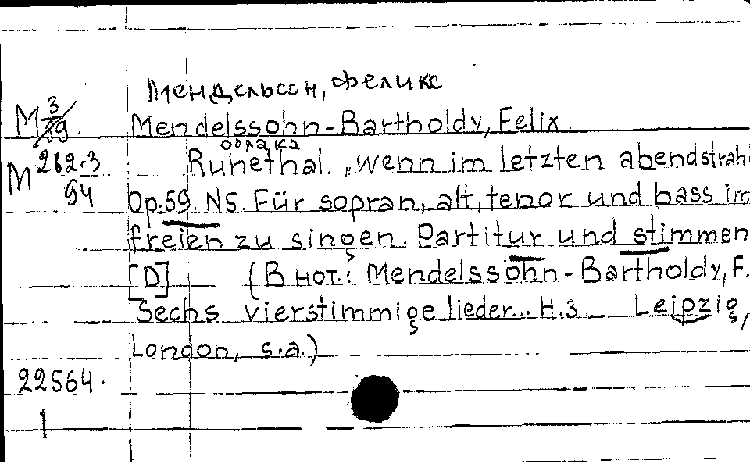 Мендельсон, Феликс
M 3/79
Mendelssohn-Bartholdy, Felix
M 262.3/94
Ruhethal. „Wenn im letzten abendstrahl
Op.59 N5. Für sopran, alt, tenor und bass im
freien zu singen. Partitur und stimmen
[D] (В нот.: Mendelssohn-Bartholdy, F.
Sechs vierstimmige lieder.. H.3 Leipzig,
London, s.a.)
22564.
1